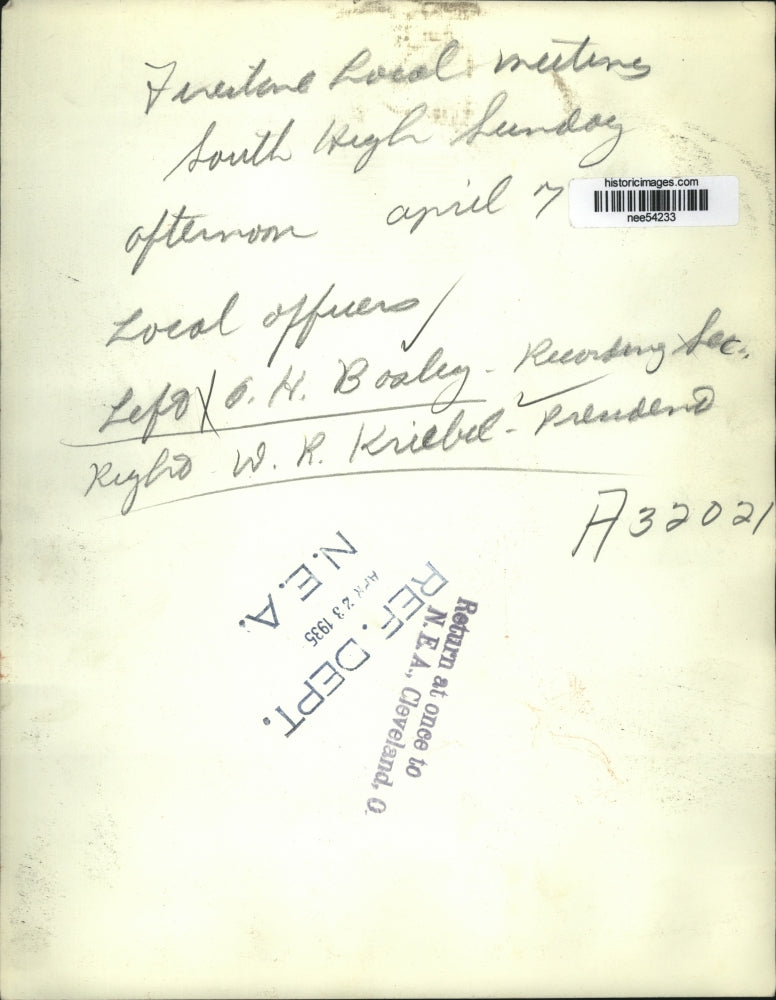 Firestone Local meeting
South High Sunday
afternoon april 7
historicimages.com
nee54233
Local officers
Left O. H. Bosley - Recording Sec.
Right W. R. Kriebel - President
A32021
N.E.A.
APR 23 1935
REF. DEPT.
Return at once to
N. E. A., Cleveland, O.